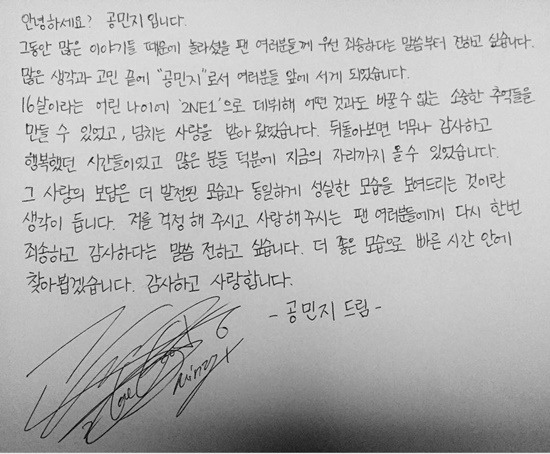 안녕하세요? 공민지 입니다.
그동안 많은 이야기들 때문에 놀라셨을 팬 여러분들께 우선 죄송하다는 말씀부터 전하고 싶습니다.
많은 생각과 고민 끝에 "공민지"로서 여러분들 앞에 서게 되었습니다.
16살이라는 어린 나이에 '2NE1'으로 데뷔해 어떤 것과도 바꿀 수 없는 소중한 추억들을
만들 수 있었고, 넘치는 사랑을 받아 왔었습니다. 뒤돌아보면 너무나 감사하고
행복했던 시간들이었고 많은 분들 덕분에 지금의 자리까지 올 수 있었습니다.
그 사랑의 보답은 더 발전된 모습과 동일하게 성실한 모습을 보여드리는 것이란
생각이 듭니다. 저를 걱정해 주시고 사랑해 주시는 팬 여러분들에게 다시 한번
죄송하고 감사하다는 말씀 전하고 싶습니다. 더 좋은 모습으로 빠른 시간 안에
찾아뵙겠습니다. 감사하고 사랑합니다.
- 공민지 드림 -